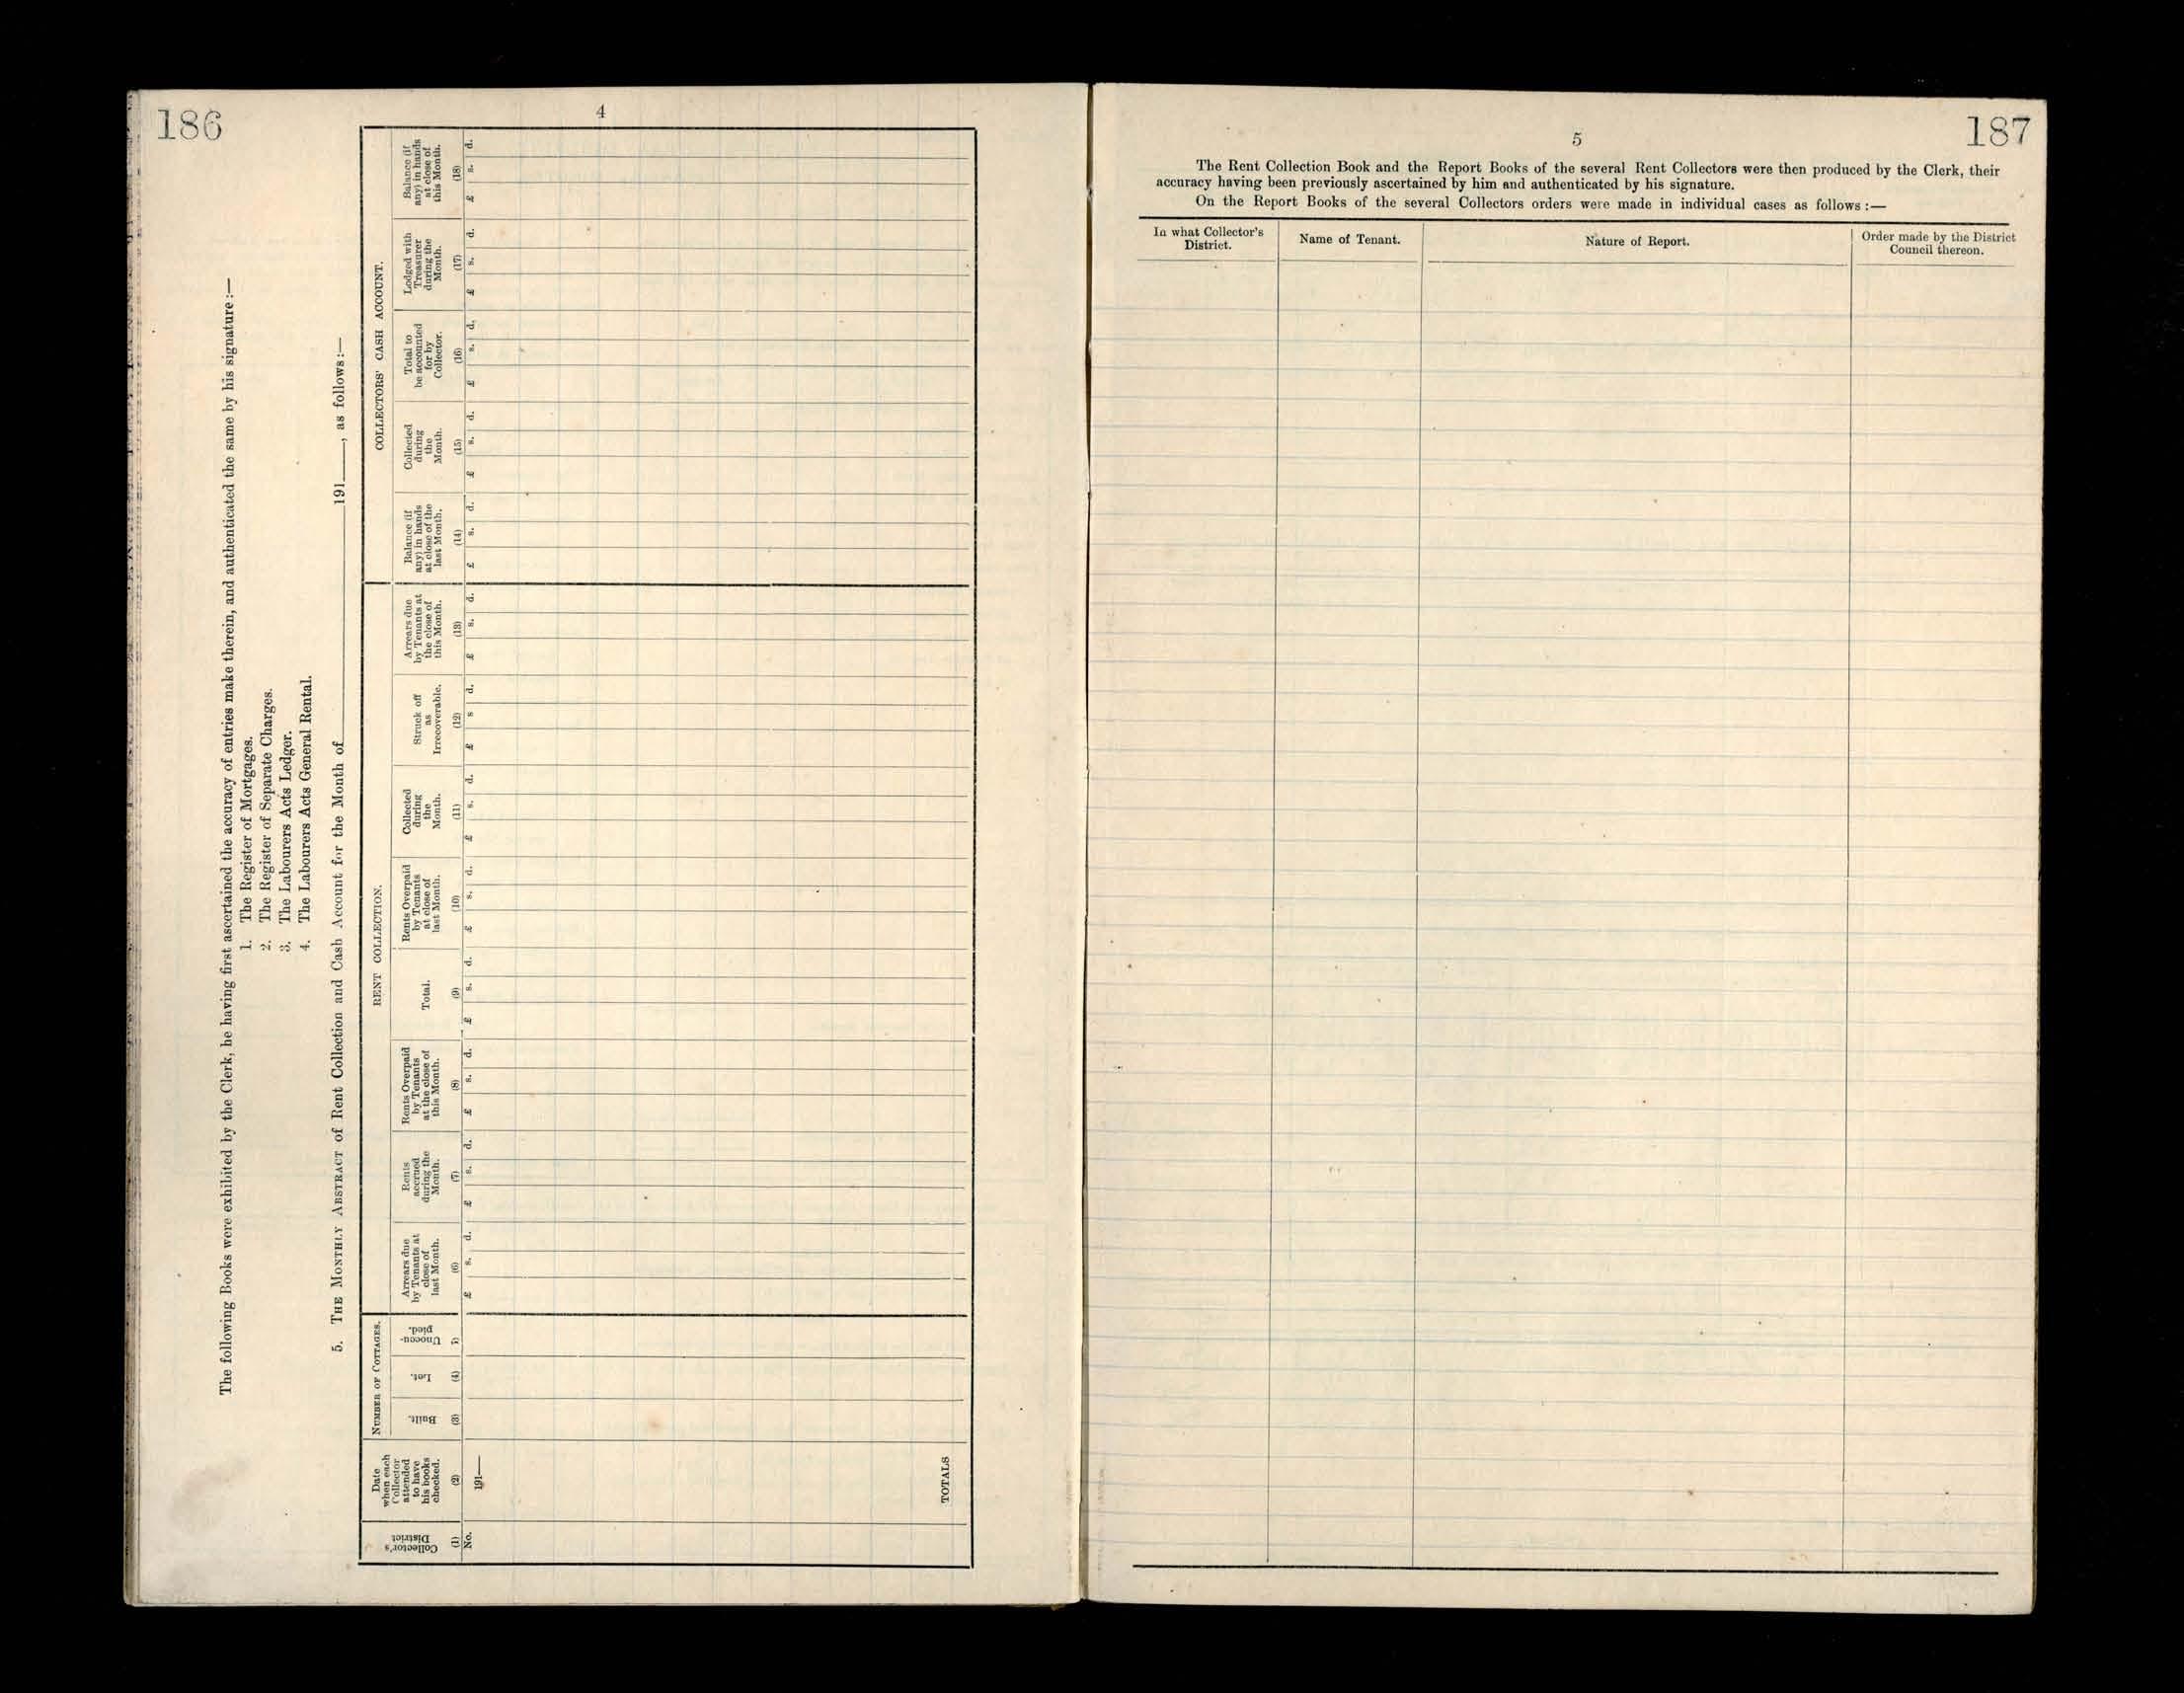 186
4
The following Books were exhibited by the Clerk, he having first ascertained the accuracy of entries make therein, and authenticated the same by his signature :—
1. The Register of Mortgages.
2. The Register of Separate Charges.
3. The Labourers Acts Ledger.
4. The Labourers Acts General Rental.
5. THE MONTHLY ABSTRACT of Rent Collection and Cash Account for the Month of 191 , as follows :—
NUMBER OF COTTAGES. RENT COLLECTION. COLLECTORS' CASH ACCOUNT.
Collector's
District
(1)
No.
Date
when each
Collector
attended
to have
his books
checked.
(2)
191—
Built.
(3)
Let.
(4)
Unoccu-
pied.
(5)
Arrears due
by Tenants at
close of
last Month.
(6)
£ s. d.
Rents
accrued
during the
Month.
(7)
£ s. d.
Rents Overpaid
by Tenants
at the close of
this Month.
(8)
£ s. d.
Total.
(9)
£ s. d.
Rents Overpaid
by Tenants
at close of
last Month.
(10)
£ s. d.
Collected
during
the
Month.
(11)
£ s. d.
Struck off
as
Irrecoverable.
(12)
£ s d.
Arrears due
by Tenants at
the close of
this Month.
(13)
£ s. d.
Balance (if
any) in hands
at close of the
last Month.
(14)
£ s. d.
Collected
during
the
Month.
(15)
£ s. d.
Total to
be accounted
for by
Collector.
(16)
£ s. d.
Lodged with
Treasurer
during the
Month.
(17)
£ s. d.
Balance (if
any) in hands
at close of
this Month.
(18)
£ s. d.
TOTALS
187
5
The Rent Collection Book and the Report Books of the several Rent Collectors were then produced by the Clerk, their
accuracy having been previously ascertained by him and authenticated by his signature.
On the Report Books of the several Collectors orders were made in individual cases as follows :—
In what Collector's
District.
Name of Tenant.
Nature of Report.
Order made by the District
Council thereon.